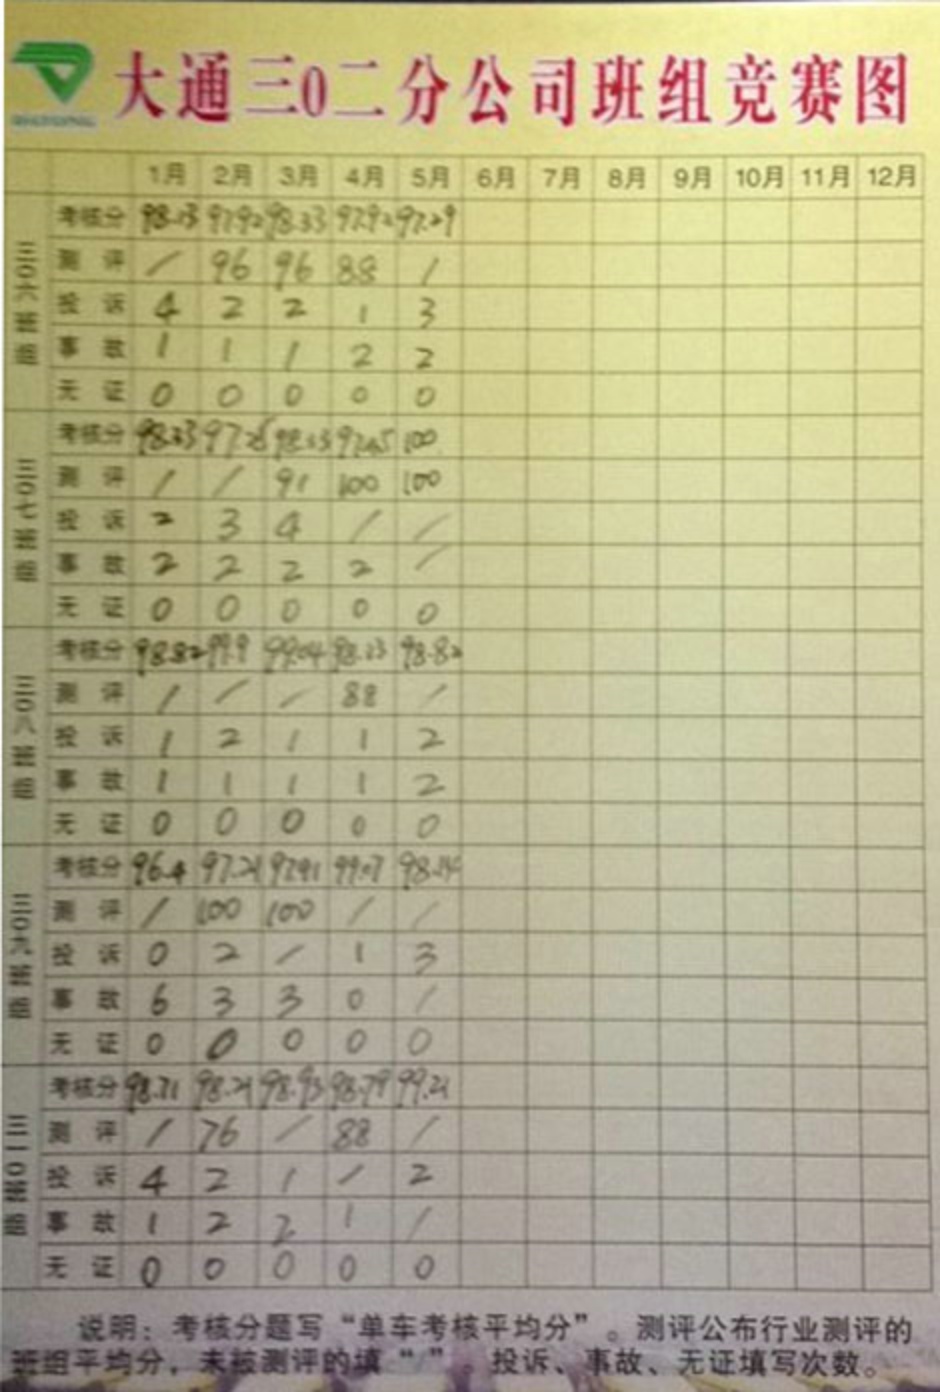 大通三0二分公司班组竞赛图
1月 2月 3月 4月 5月 6月 7月 8月 9月 10月 11月 12月
三0六班组
考核分 98.13 97.92 98.33 97.92 97.29
测评 / 96 96 88 /
投诉 4 2 2 1 3
事故 1 1 1 2 2
无证 0 0 0 0 0
三0七班组
考核分 98.33 97.25 98.33 100
测评 / / 91 100 100
投诉 2 3 4 / /
事故 2 2 2 2 /
无证 0 0 0 0 0
三0八班组
考核分 98.82 99.9 99.04 98.23 98.82
测评 / / / 88 /
投诉 1 2 1 1 2
事故 1 1 1 1 2
无证 0 0 0 0 0
三0九班组
考核分 96.4 97.21 97.91 99.07 98.14
测评 / 100 100 / /
投诉 0 2 / 1 3
事故 6 3 3 0 /
无证 0 0 0 0 0
三一0班组
考核分 98.71 98.21 98.93 98.79 99.21
测评 / 76 / 88 /
投诉 4 2 1 / 2
事故 1 2 2 1 /
无证 0 0 0 0 0
说明：考核分题写“单车考核平均分”。测评公布行业测评的
班组平均分，未被测评的填“/”。投诉、事故、无证填写次数。